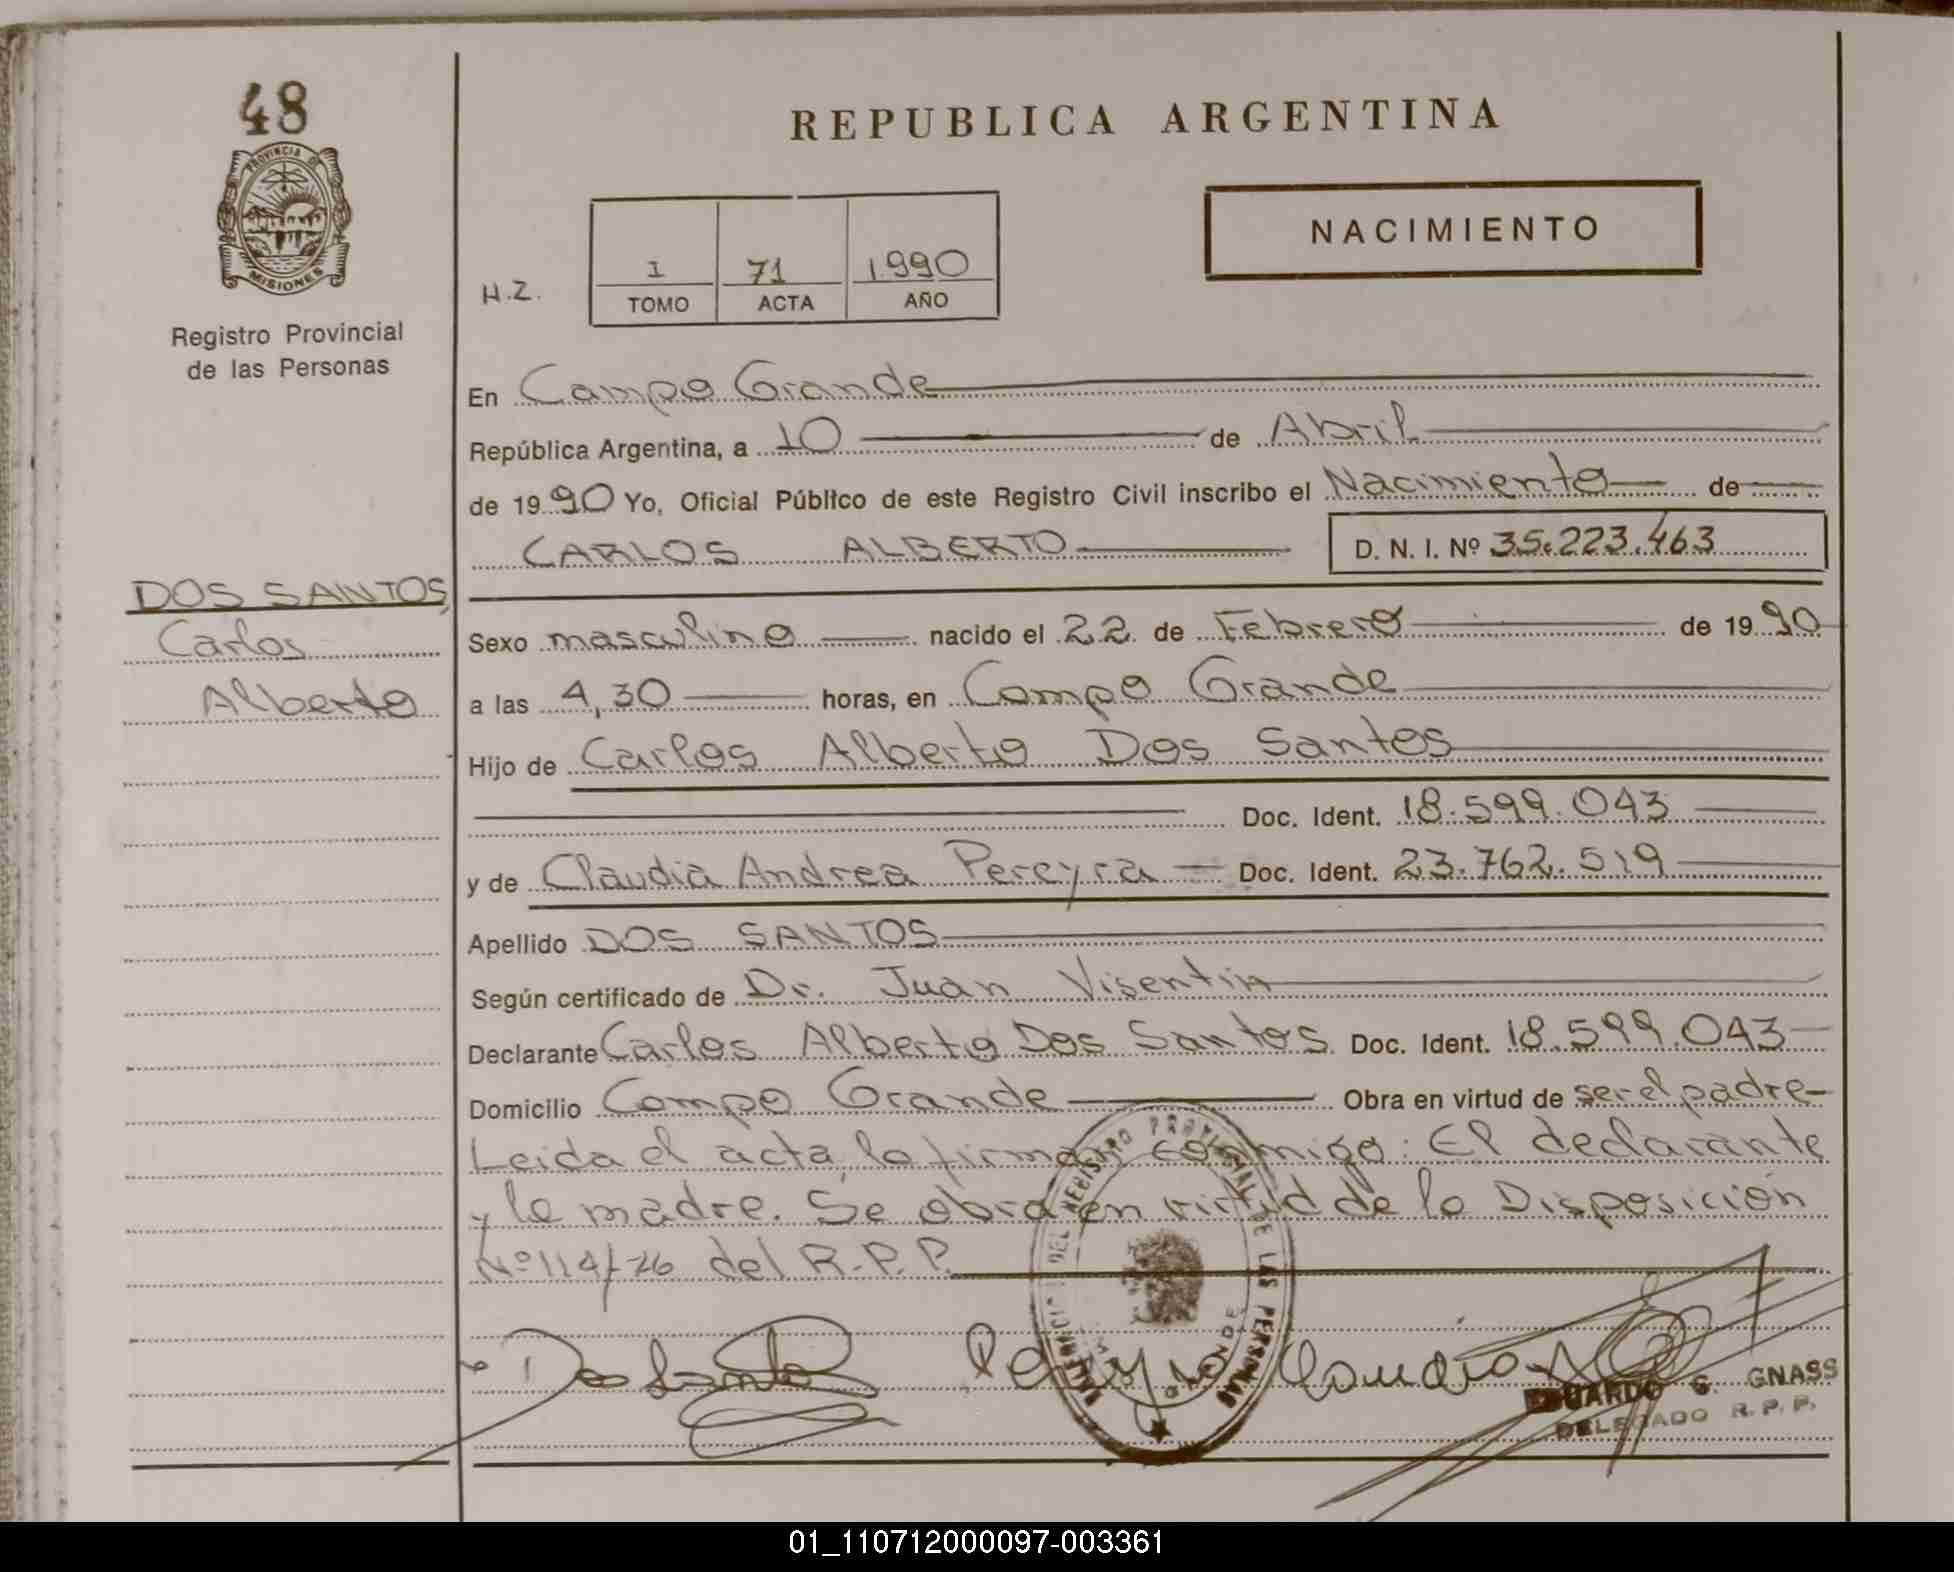 48
PROVINCIA DE
MISIONES
Registro Provincial
de las Personas
REPUBLICA ARGENTINA
NACIMIENTO
H.Z.
I 71 1.990
TOMO ACTA AÑO
En Campo Grande
República Argentina, a 10 de Abril
de 1990 Yo, Oficial Público de este Registro Civil inscribo el Nacimiento de
CARLOS ALBERTO D. N. I. Nº 35.223.463
DOS SANTOS,
Carlos
Alberto
Sexo masculino nacido el 22 de Febrero de 1990
a las 4,30 horas, en Campo Grande
Hijo de Carlos Alberto Dos Santos
Doc. Ident. 18.599.043
y de Claudia Andrea Pereyra Doc. Ident. 23.762.519
Apellido DOS SANTOS
Según certificado de Dr. Juan Visentin
Declarante Carlos Alberto Dos Santos Doc. Ident. 18.599.043
Domicilio Campo Grande Obra en virtud de ser el padre
Leida el acta la firman conmigo: El declarante
y la madre. Se obra en virtud de la Disposición
Nº 114/76 del R.P.P.
DEL REGISTRO PROVINCIAL DE LAS PERSONAS
Dos Santos Pereyra Claudia
EDUARDO G. GNASS
DELEGADO R.P.P.
01_110712000097-003361